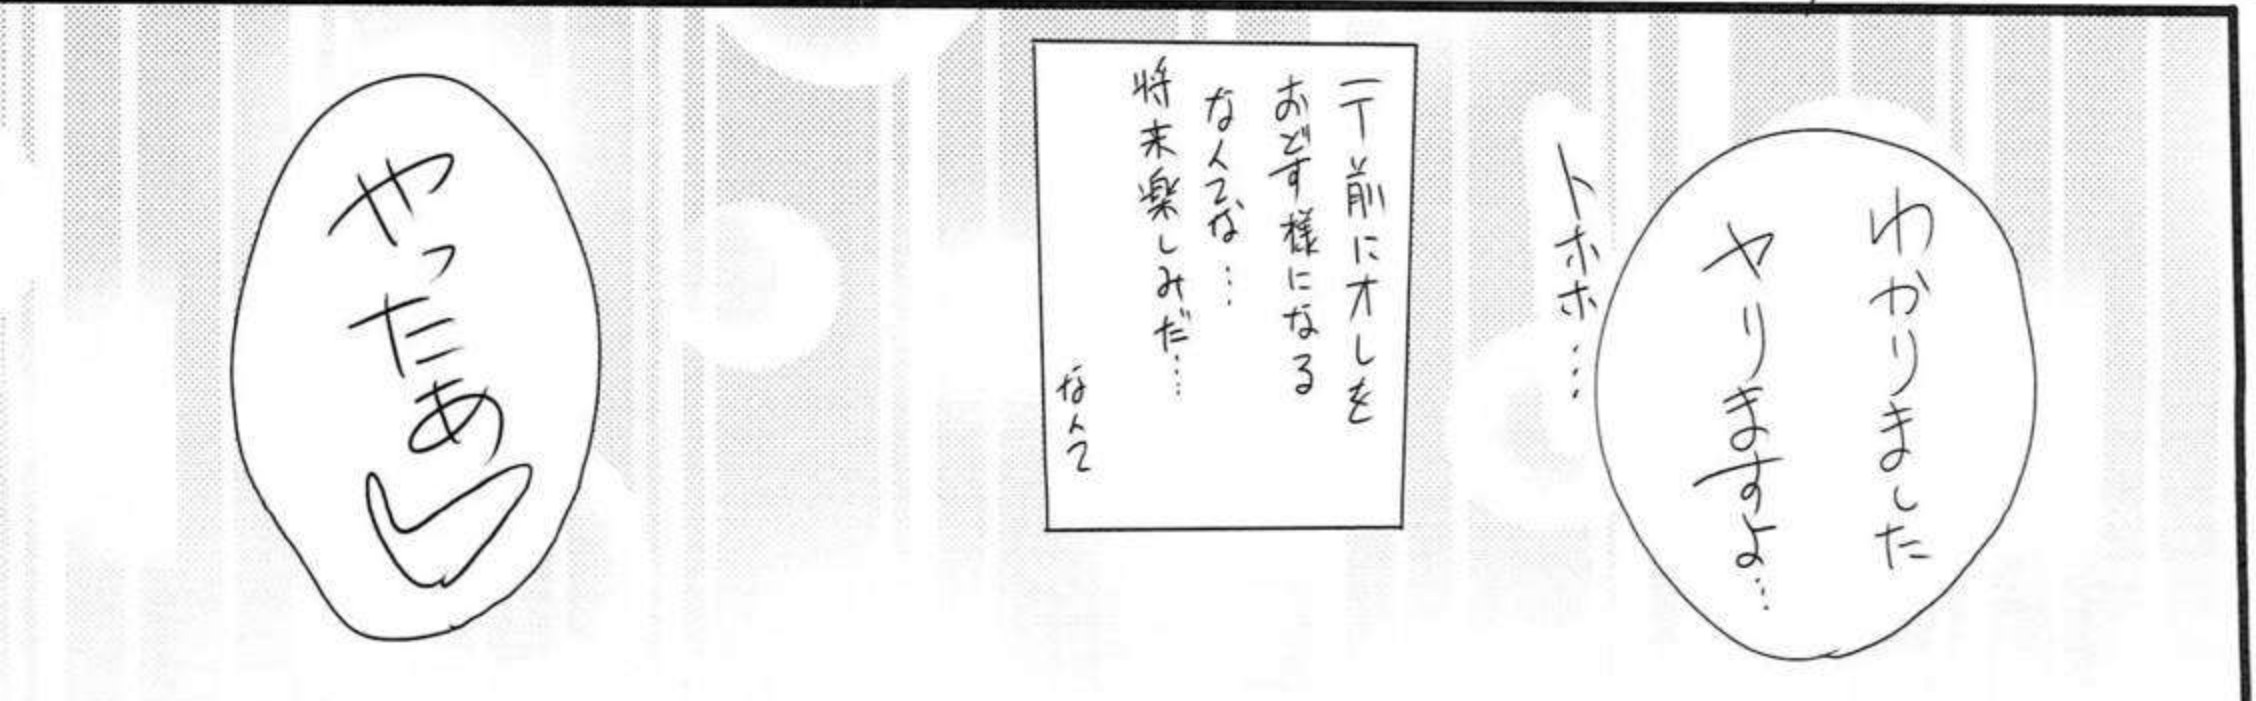 わかりました
ヤりますよ…
トホホ…
一丁前にオレを
おどす様になる
なんてな…
将来楽しみだ…
なんて
やったあ